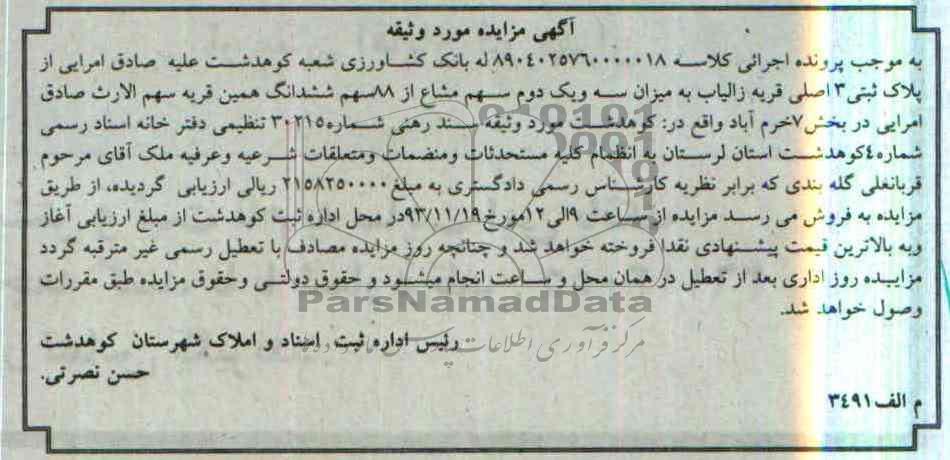 آگهی مزایده مورد وثیقه
به موجب پرونده اجرائی کلاسه ۸۹۰۴۰۲۵۷۶۰۰۰۰۰۱۸ له بانک کشاورزی شعبه کوهدشت علیه صادق امرایی از
پلاک ثبتی۳ اصلی قریه زالیاب به میزان سه ویک دوم سهم مشاع از ۸۸سهم ششدانگ همین قریه سهم الارث صادق
امرایی در بخش۷خرم آباد واقع در: کوهدشت مورد وثیقه سند رهنی شماره۳۰۲۱۵ تنظیمی دفتر خانه اسناد رسمی
شماره۴کوهدشت استان لرستان به انظمام کلیه مستحدثات ومنضمات ومتعلقات شرعیه وعرفیه ملک آقای مرحوم
قربانعلی گله بندی که برابر نظریه کارشناس رسمی دادگستری به مبلغ۲۱۵۸۲۵۰۰۰۰ ریالی ارزیابی گردیده، از طریق
مزایده به فروش می رسد مزایده از ساعت ۹الی۱۲مورخ۹۳/۱۱/۱۹در محل اداره ثبت کوهدشت از مبلغ ارزیابی آغاز
وبه بالاترین قیمت پیشنهادی نقدا فروخته خواهد شد و چنانچه روز مزایده مصادف با تعطیل رسمی غیر مترقبه گردد
مزایده روز اداری بعد از تعطیل در همان محل و ساعت انجام میشود و حقوق دولتی وحقوق مزایده طبق مقررات
وصول خواهد شد.
ParsNamadData
رئیس اداره ثبت اسناد و املاک شهرستان کوهدشت
مرکز فرآوری اطلاعات
حسن نصرتی.
م الف۳۴۹۱